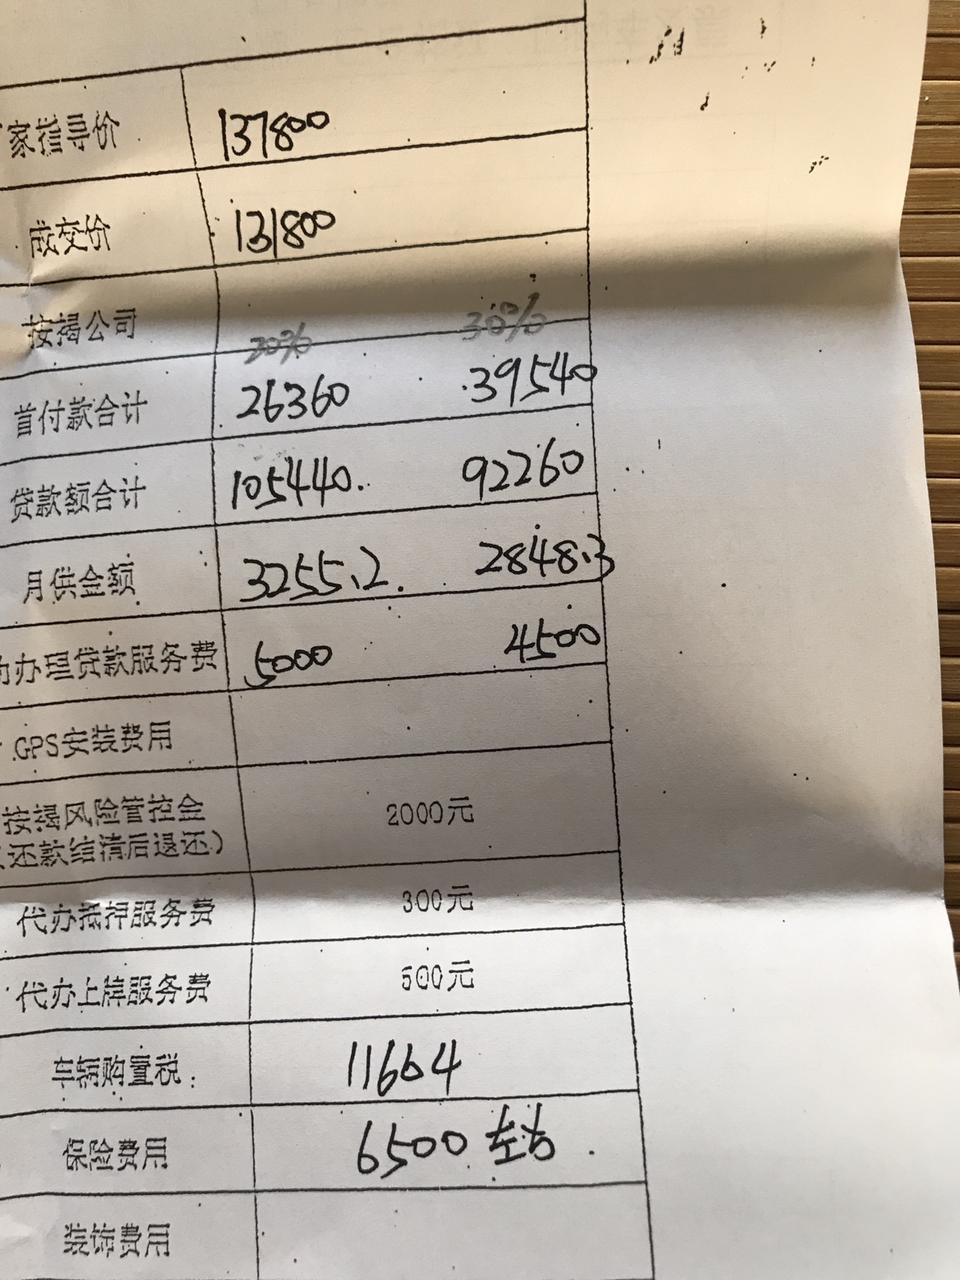 家指导价 137800
成交价 131800
按揭公司 20% 30%
首付款合计 26360 39540
贷款额合计 105440. 92260
月供金额 3255.2. 2848.3
办理贷款服务费 5000 4500
GPS安装费用
按揭风险管控金 2000元
还款结清后退还）
代办抵押服务费 300元
代办上牌服务费 500元
车辆购置税： 11664
保险费用 6500左右.
装饰费用